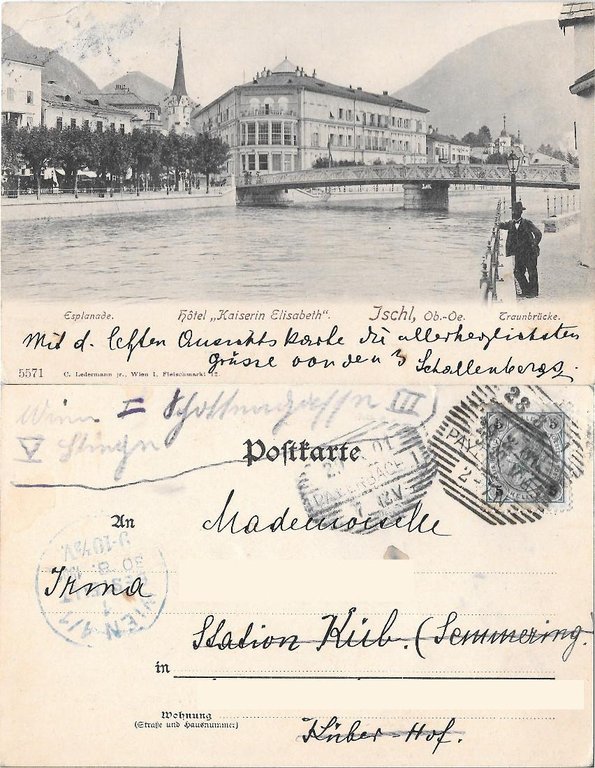 Esplanade. Hôtel „Kaiserin Elisabeth". Ischl, Ob.-Oe. Traunbrücke.
Mit d. letzten Ansichtskarte die allerherzlichsten
Grüsse von den 3 Schallenbergs.
5571 C. Ledermann jr., Wien I, Fleischmarkt 12.
Wien I Schottengasse III
V Stiege
Postkarte
An Mademoiselle
Irma
Station Küb. (Semmering.
in
Wohnung
(Straße und Hausnummer)
Küber-Hof.
PAYERBACH
WIEN 1/1
BESTELLT
30. 8.
9-10½V